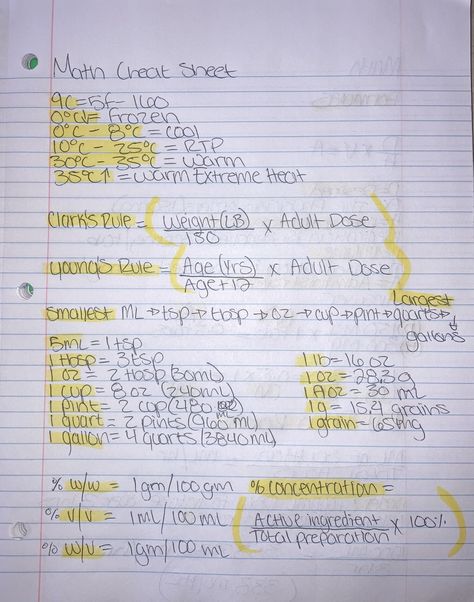 Math Cheat Sheet
9C = 5F - 160
0°C↓ = Frozen
0°C - 8°C = COOl
10°C - 25°C = RTP
30°C - 35°C = Warm
35°C↑ = Warm Extreme Heat
Clark's Rule = Weight (LB) / 150 x Adult Dose
Young's Rule = Age (Yrs) / Age + 12 x Adult Dose
Largest
Smallest ML → tsp → tbsp → oz → cup → pint → quarts →
gallons
5mL = 1 tsp
1 tbsp = 3 tsp
1 oz = 2 tbsp (30mL)
1 cup = 8 oz (240mL)
1 pint = 2 cup (480)
1 quart = 2 pints (960 mL)
1 gallon = 4 quarts (3840 mL)
1 lb = 16 oz
1 oz = 28.3g
1 floz = 30 mL
1g = 15.4 grains
1 grain = 65mg
% w/w = 1gm/100gm
% v/v = 1mL/100mL
% w/v = 1gm/100 mL
% concentration =
Active ingredient / Total preparation x 100%